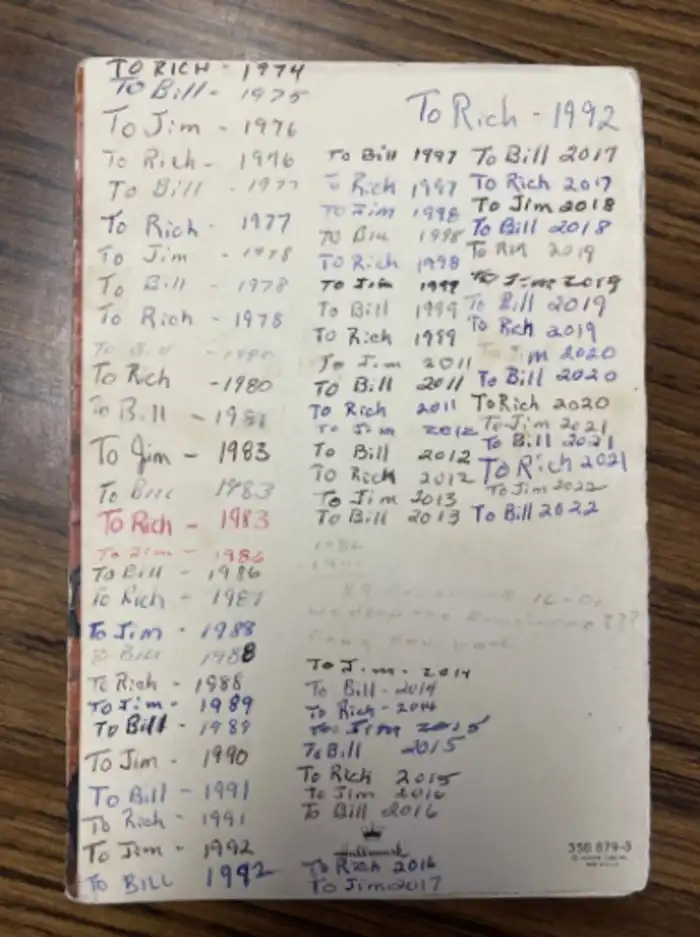 TO RICH - 1974
To Bill - 1975
To Jim - 1976
To Rich - 1976
To Bill - 1977
To Rich - 1977
To Jim - 1978
To Bill - 1978
To Rich - 1978
To Rich - 1980
To Bill - 1981
To Jim - 1983
To Bill 1983
To Rich - 1983
To Jim - 1986
To Bill - 1986
To Rich - 1987
To Jim - 1988
To Bill 1988
To Rich - 1988
To Jim - 1989
To Bill - 1989
To Jim - 1990
To Bill - 1991
To Rich - 1991
To Jim - 1992
To BILL 1992
To Rich - 1992
To Bill 1997
To Rich 1997
To Jim 1998
To Bill 1998
To Rich 1998
To Jim 1999
To Bill 1999
To Rich 1999
To Jim 2011
To Bill 2011
To Rich 2011
To Jim 2012
To Bill 2012
To Rich 2012
To Jim 2013
To Bill 2013
1986
To Jim - 2014
To Bill - 2014
To Rich - 2014
To Jim 2015
To Bill 2015
To Rich 2015
To Jim 2016
To Bill 2016
Hallmark
To Rich 2016
To Jim 2017
To Bill 2017
To Rich 2017
To Jim 2018
To Bill 2018
To 2019
To Jim 2019
To Bill 2019
To Rich 2019
To Jim 2020
To Bill 2020
To Rich 2020
To Jim 2021
To Bill 2021
To Rich 2021
To Jim 2022
To Bill 2022